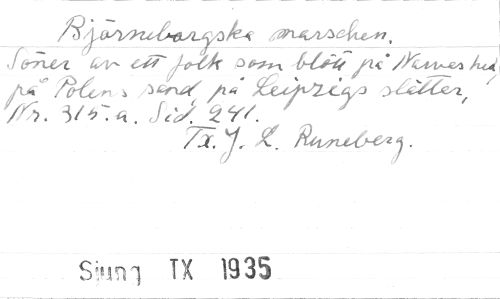 Björneborgska marschen.
Söner av ett folk som blött på Narvas hed,
på Polens sand, på Leipzigs slätter,
Nr. 315.a. Sid. 241.
Tx. J. L. Runeberg.
Sjung IX 1935